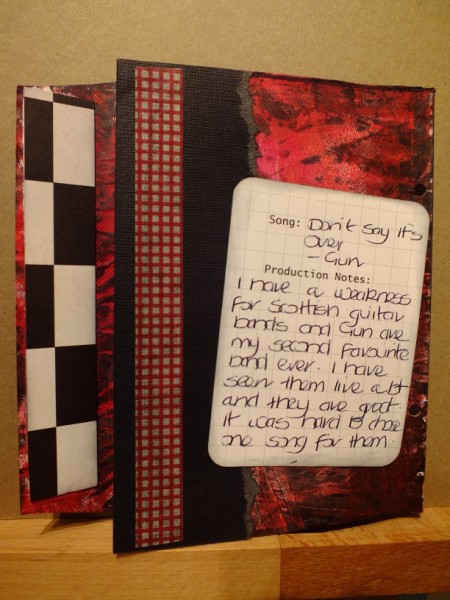 Song: Don't Say It's
Over
- Gun
Production Notes:
I have a weakness
for Scottish guitar
bands and Gun are
my second favourite
band ever. I have
seen them live a lot
and they are great.
It was hard to chose
one song for them.